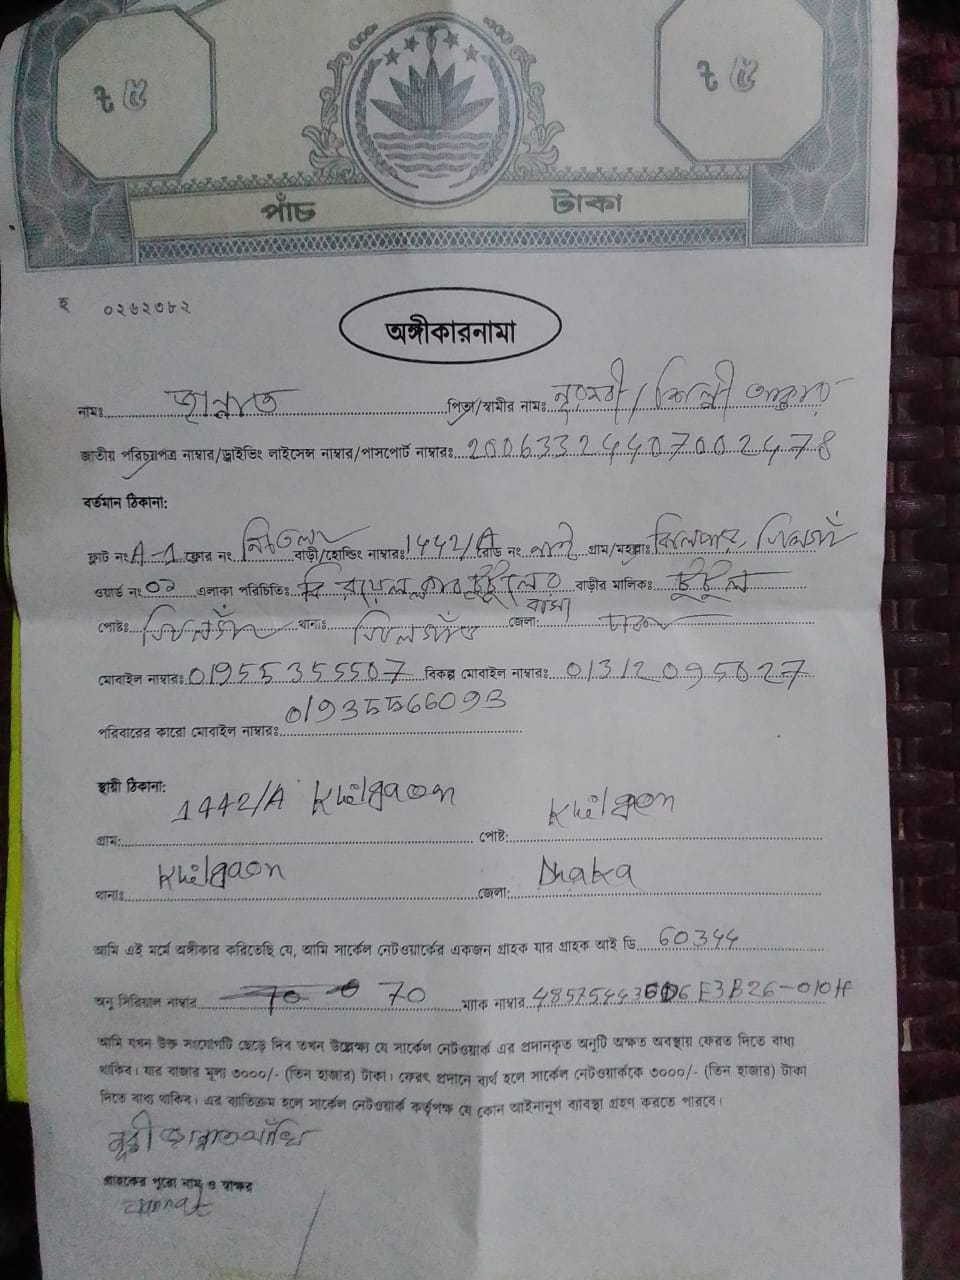 ৳ ৫ ৳ ৫
পাঁচ টাকা
হ ০২৬২৩৮২
অঙ্গীকারনামা
নামঃ জান্নাত পিতা/স্বামীর নামঃ নূরনবী / শিল্পী আক্তার
জাতীয় পরিচয়পত্র নাম্বার/ড্রাইভিং লাইসেন্স নাম্বার/পাসপোর্ট নাম্বারঃ 20063324407002478
বর্তমান ঠিকানা:
ফ্লাট নংঃ A-1 ফ্লোর নং বাড়ী/হোল্ডিং নাম্বারঃ 1442/A রোড নং নাই গ্রাম/মহল্লাঃ
ওয়ার্ড নংঃ ০২ এলাকা পরিচিতিঃ টুটুলের বাসা বাড়ীর মালিকঃ টুটুল
পোষ্টঃ খিলগাঁও থানাঃ খিলগাঁও জেলা: ঢাকা
মোবাইল নাম্বারঃ 01955355507 বিকল্প মোবাইল নাম্বারঃ 01312095027
পরিবারের কারো মোবাইল নাম্বারঃ 01935566093
স্থায়ী ঠিকানা:
গ্রাম: 1442/A Khilgaon পোষ্ট: Khilgaon
থানাঃ Khilgaon জেলা: Dhaka
আমি এই মর্মে অঙ্গীকার করিতেছি যে, আমি সার্কেল নেটওয়ার্কের একজন গ্রাহক যার গ্রাহক আই ডি 60344
অনু সিরিয়াল নাম্বার 70 ম্যাক নাম্বার
আমি যখন উক্ত সংযোগটি ছেড়ে দিব তখন উল্লেখ্য যে সার্কেল নেটওয়ার্ক এর প্রদানকৃত অনুটি অক্ষত অবস্থায় ফেরত দিতে বাধ্য
থাকিব। যার বাজার মূল্য ৩০০০/- (তিন হাজার) টাকা। ফেরৎ প্রদানে ব্যর্থ হলে সার্কেল নেটওয়ার্ককে ৩০০০/- (তিন হাজার) টাকা
দিতে বাধ্য থাকিব। এর ব্যতিক্রম হলে সার্কেল নেটওয়ার্ক কর্তৃপক্ষ যে কোন আইনানুগ ব্যবস্থা গ্রহণ করতে পারবে।
গ্রাহকের পুরো নাম ও স্বাক্ষর